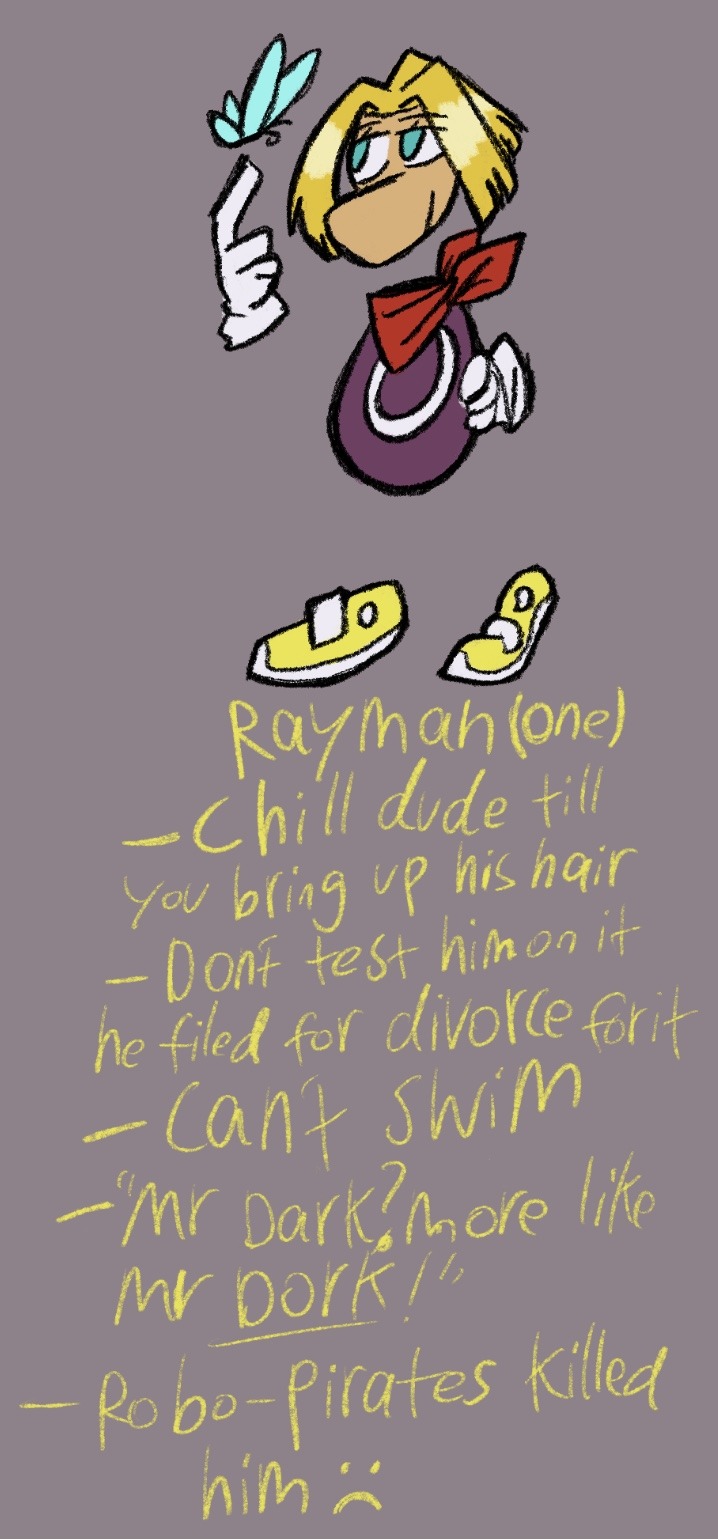 Rayman (one)
- Chill dude till
you bring up his hair
- Don't test him on it
he filed for divorce for it
- Can't swim
- "Mr Dark? more like
Mr Dork!"
- Robo-pirates killed
him :(